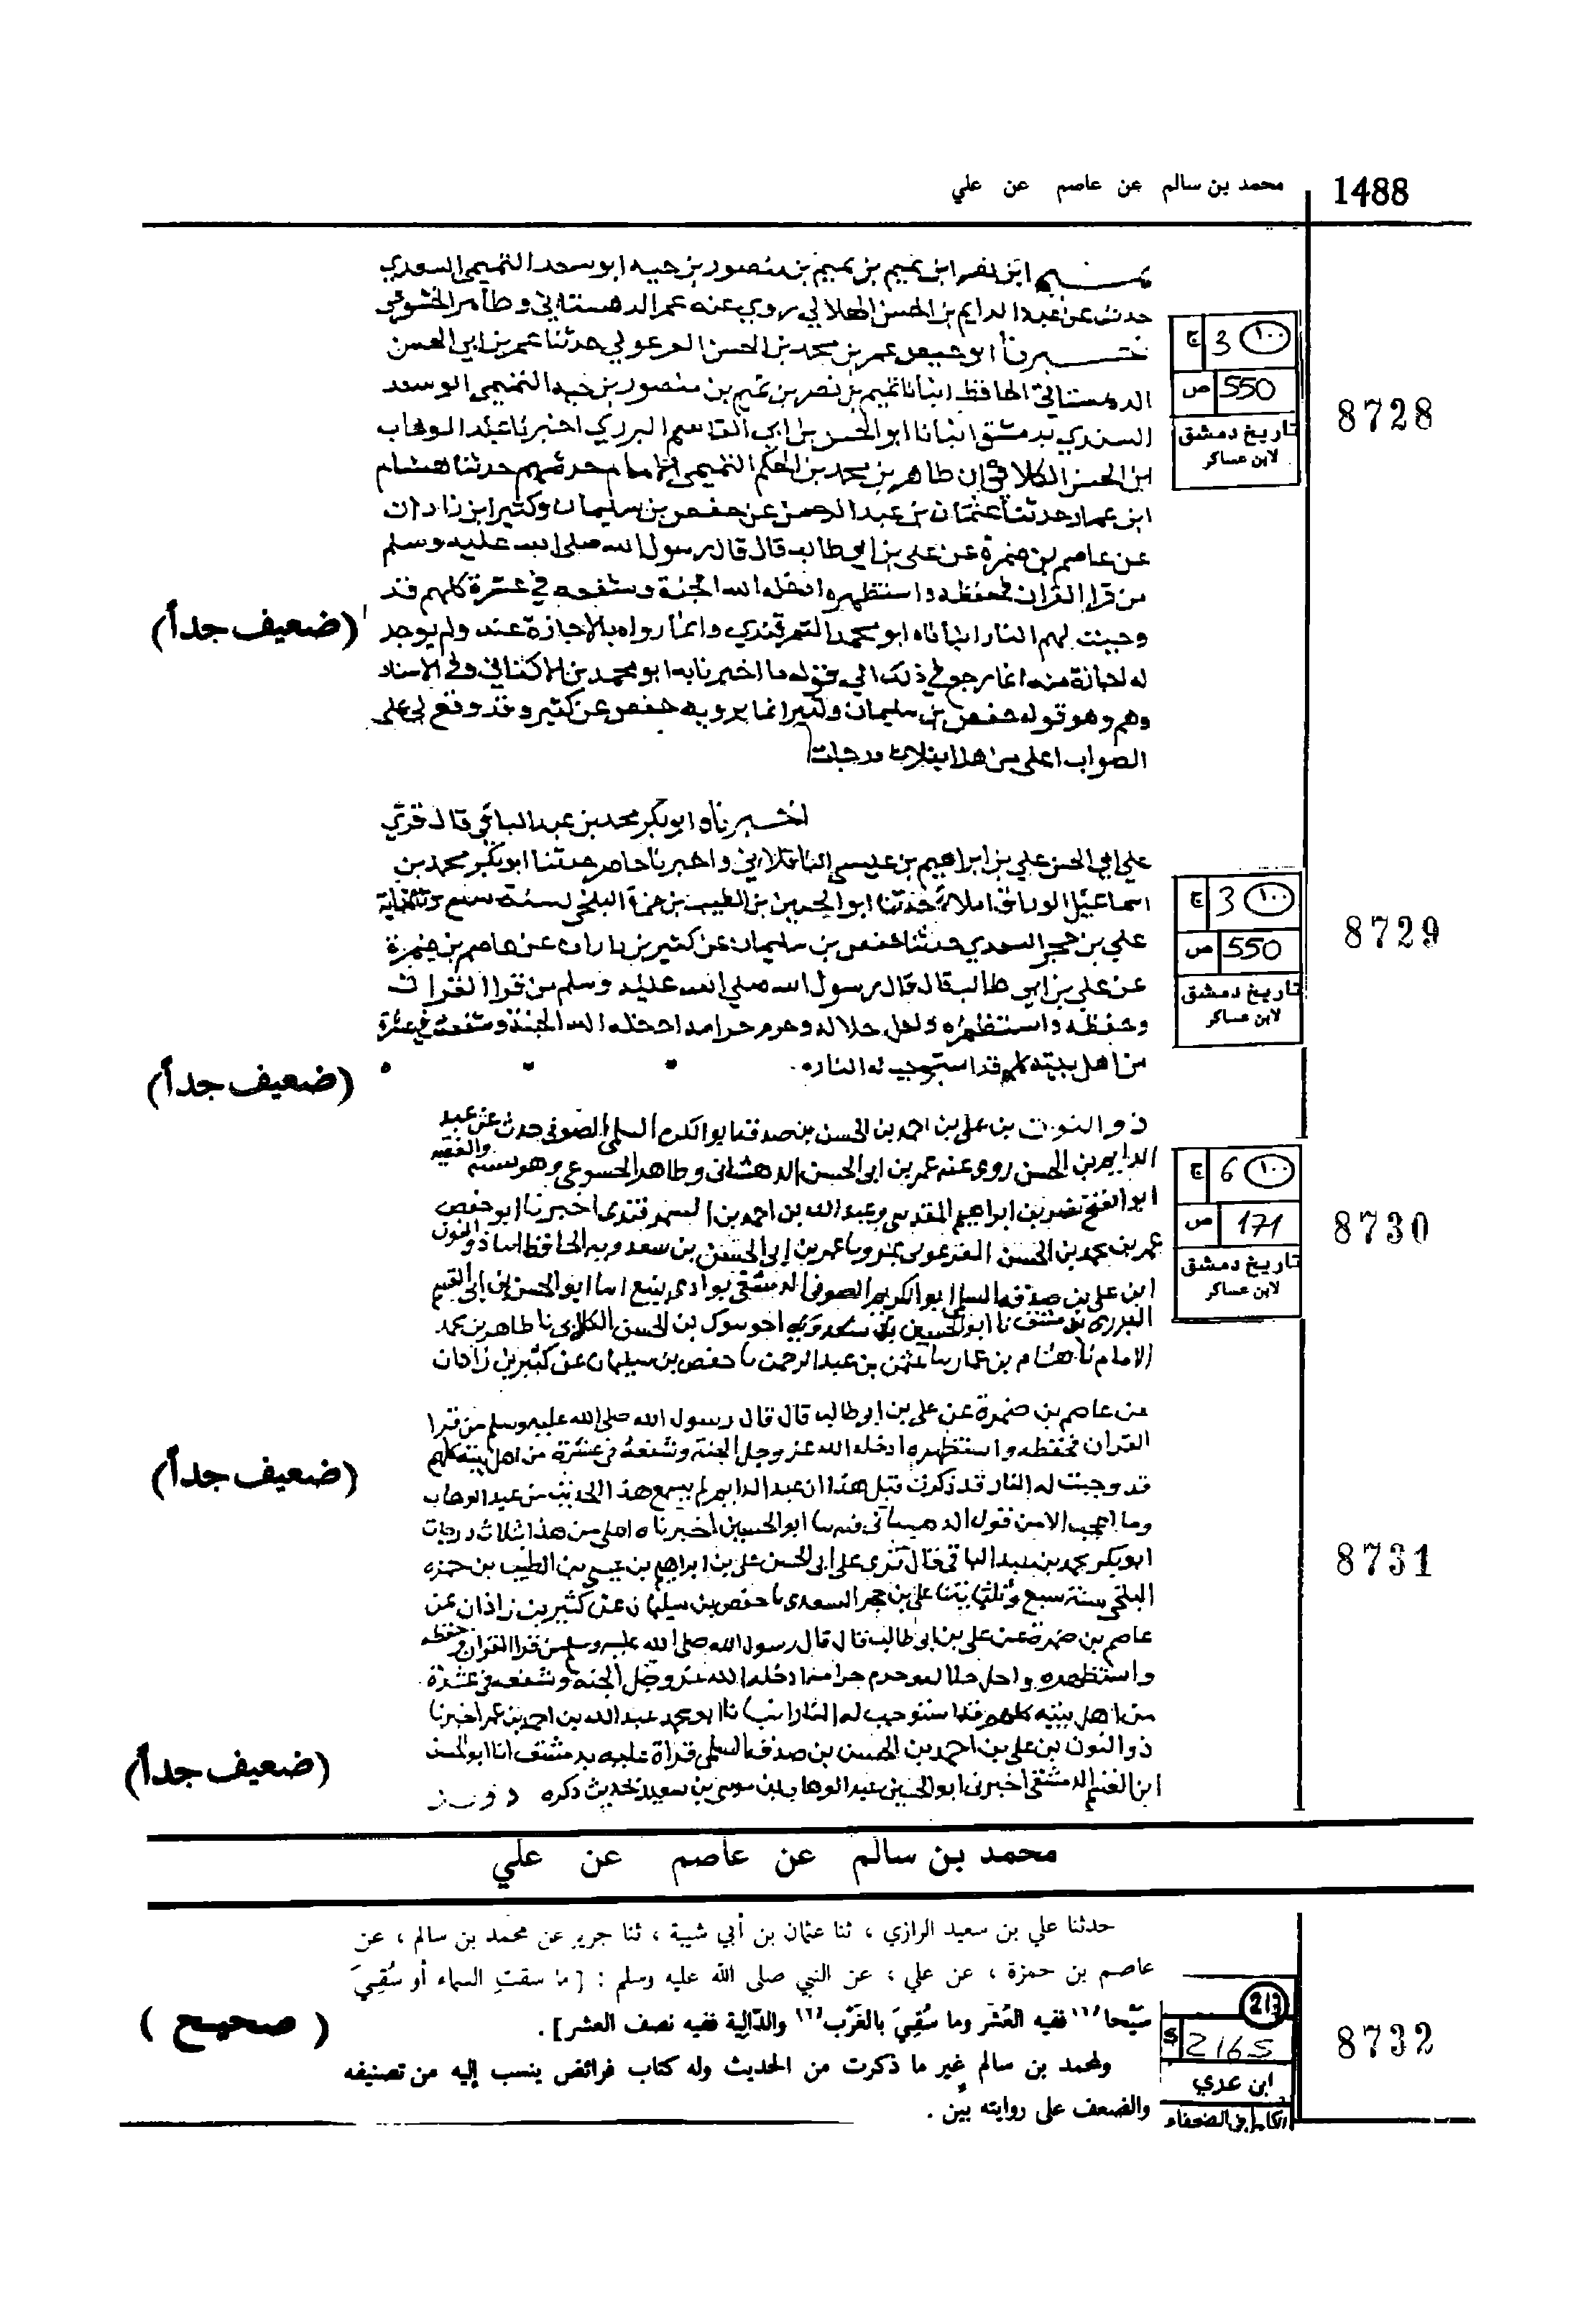 1488
محمد بن سالم عن عاصم عن علي
ابن نصر ابن تميم بن تميم بن منصور بن حيه ابو سعد التميمي السعدي
حدث عن عبد الدايم بن الحسن الهلالي روي عنه عمر الدهستاني وطاهر الخشوعي
ابو حفص عمر بن محمد بن الحسن حدثنا عمر بن ابي الحسن
الدهستاني الحافظ انبانا تميم بن نصر بن تميم بن منصور بن حيه التميمي ابو سعد
بدمشق انبانا ابو الحسن بن ابي القاسم اخبرنا عبد الوهاب
ابن الحسن الكلابي ان طاهر بن محمد بن الحكم التميمي الامام حدثهم حدثنا هشام
ابن عمار حدثنا عثمان بن عبد الرحمن عن حفص بن سليمان وكثير ابن زادان
عن عاصم بن ضمرة عن علي بن ابي طالب قال قال رسول الله صلى الله عليه وسلم
من قرا القران فحفظه واستظهره ادخله الله الجنة وشفعه في عشرة كلهم قد
وجبت لهم النار انباناه ابو محمد السمرقندي وانما رواه بالاجازة عنه ولم يوجد
له اجازة منه انما رجع في ذلك الي قوله ما اخبرنا به ابو محمد بن الاكفاني وفي الاسناد
وهم وهو قوله حفص بن سليمان وكثير انما يرويه حفص عن كثير وقد وقع لي على
الصواب اعلى من هذا بثلاث درجات
8728
ج 3 ١٠٠
ص 550
تاريخ دمشق
لابن عساكر
(ضعيف جداً)
اخبرناه ابو بكر محمد بن عبد الباقي قال قري
علي ابي الحسن علي بن ابراهيم بن عيسى الباقلاني وانا حاضر حدثنا ابو بكر محمد بن
اسماعيل الوراق املاء حدثنا ابو الحسين بن الطيب بن حمزة البلخي لسنة سبع
علي بن حجر السعدي حدثنا حفص بن سليمان عن كثير بن زادان عن عاصم بن ضمرة
عن علي بن ابي طالب قال قال رسول الله صلى الله عليه وسلم من قرا القران
وحفظه واستظهره واحل حلاله وحرم حرامه ادخله الله الجنة وشفعه في عشرة
من اهل بيته كلهم قد استوجب له النار.
8729
ج 3 ١٠٠
ص 550
تاريخ دمشق
لابن عساكر
(ضعيف جداً)
ذو النون بن علي بن احمد بن الحسن بن صدقة ابو الكرم السلمي الصوفي حدث عن عبد
الدايم بن الحسن روى عنه عمر بن ابي الحسن الدهستاني وطاهر الخشوعي والفقيه
ابو الفتح نصر بن ابراهيم المقدسي وعبد الله بن احمد بن السمرقندي اخبرنا ابو حفص
عمر بن محمد بن الحسن الفرغولي بمرو نا عمر بن ابي الحسن بن سعدويه الحافظ انا ذو النون
ابن علي بن صدقة السلمي ابو الكرم الصوفي الدمشقي بوادي ينبع انا ابو الحسن بن ابي القسم
بدمشق نا ابو الحسين بن الحسن الكلابي نا طاهر بن محمد
الامام نا هشام بن عمار نا عثمن بن عبد الرحمن نا حفص بن سليمان عن كثير بن زاذان
عن عاصم بن ضمرة عن علي بن ابي طالب قال قال رسول الله صلى الله عليه وسلم من قرا
القران فحفظه واستظهره ادخله الله عز وجل الجنة وشفعه في عشرة من اهل بيته كلهم
قد وجبت له النار قد ذكرت قبل هذا ان عبد الدايم لم يسمع هذا الحديث من عبد الوهاب
وما اعجب الا من قول الدهستاني فيه نا ابو الحسين اخبرناه اعلى من هذا ثلاث درجات
ابو بكر محمد بن عبد الباقي قال قرى على ابي الحسن علي بن ابراهيم بن عيسى بن الطيب بن حمزه
البلخي سنة سبع وثلثماية نا علي بن حجر السعدي نا حفص بن سليمان عن كثير بن زاذان عن
عاصم بن ضمرة عن علي بن ابي طالب قال قال رسول الله صلى الله عليه وسلم من قرا القران وحفظه
واستظهره واحل حلاله وحرم حرامه ادخله الله عز وجل الجنة وشفعه في عشرة
من اهل بيته كلهم قد استوجب له النار نا ابو محمد عبد الله بن احمد بن عمر اخبرنا
ذو النون بن علي بن احمد بن الحسن بن صدقة السلمي قراة عليه بدمشق انا ابو الحسن
ابن الغنم الدمشقي اخبرني ابو الحسين عبد الوهاب بن موسى بن سعيد بحديث ذكره
8730
ج 6 ١٠٠
ص 171
تاريخ دمشق
لابن عساكر
(ضعيف جداً)
8731
(ضعيف جداً)
محمد بن سالم عن عاصم عن علي
حدثنا علي بن سعيد الرازي ، ثنا عثمان بن أبي شيبة ، ثنا جرير عن محمد بن سالم ، عن
عاصم بن حمزة ، عن علي ، عن النبي صلى الله عليه وسلم : [ ما سقتِ السماء أو سُقِيَ
سَيْحا ففيه العُشْر وما سُقِيَ بالغَرْب والدَّالِية ففيه نصف العشر ] .
ولمحمد بن سالم غير ما ذكرت من الحديث وله كتاب فرائض ينسب إليه من تصنيفه
والضعف على روايته بيّن .
8732
213
2165
ابن عدي
الكامل في الضعفاء
( صحيح )